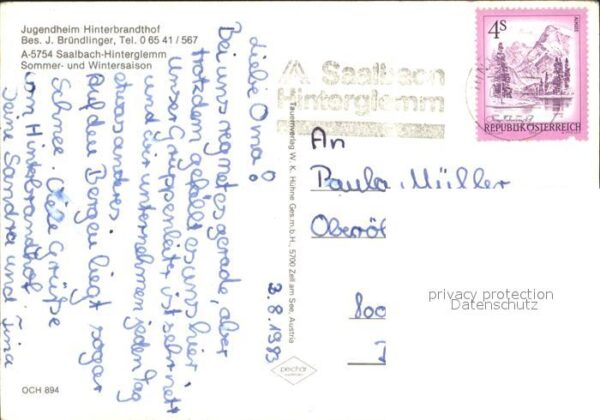 Jugendheim Hinterbrandthof
Bes. J. Bründlinger, Tel. 0 65 41 / 567
A-5754 Saalbach-Hinterglemm
Sommer- und Wintersaison
Liebe Oma!
Bei uns regnet es gerade, aber
trotzdem gefällt es uns hier.
Unser Gruppenleiter ist sehr nett
und wir unternehmen jeden Tag
etwas anderes.
Auf den Bergen liegt sogar
Schnee. Viele Grüße
vom Hinterbrandthof.
Deine Sandra und Tina
3.8.1983
OCH 894
Tauernverlag W. K. Hühne Ges.m.b.H., 5700 Zell am See, Austria
pechar
Saalbach
Hinterglemm
4S
ALMSEE
REPUBLIK ÖSTERREICH
An
Paula Müller
Oberöt
800
privacy protection
Datenschutz